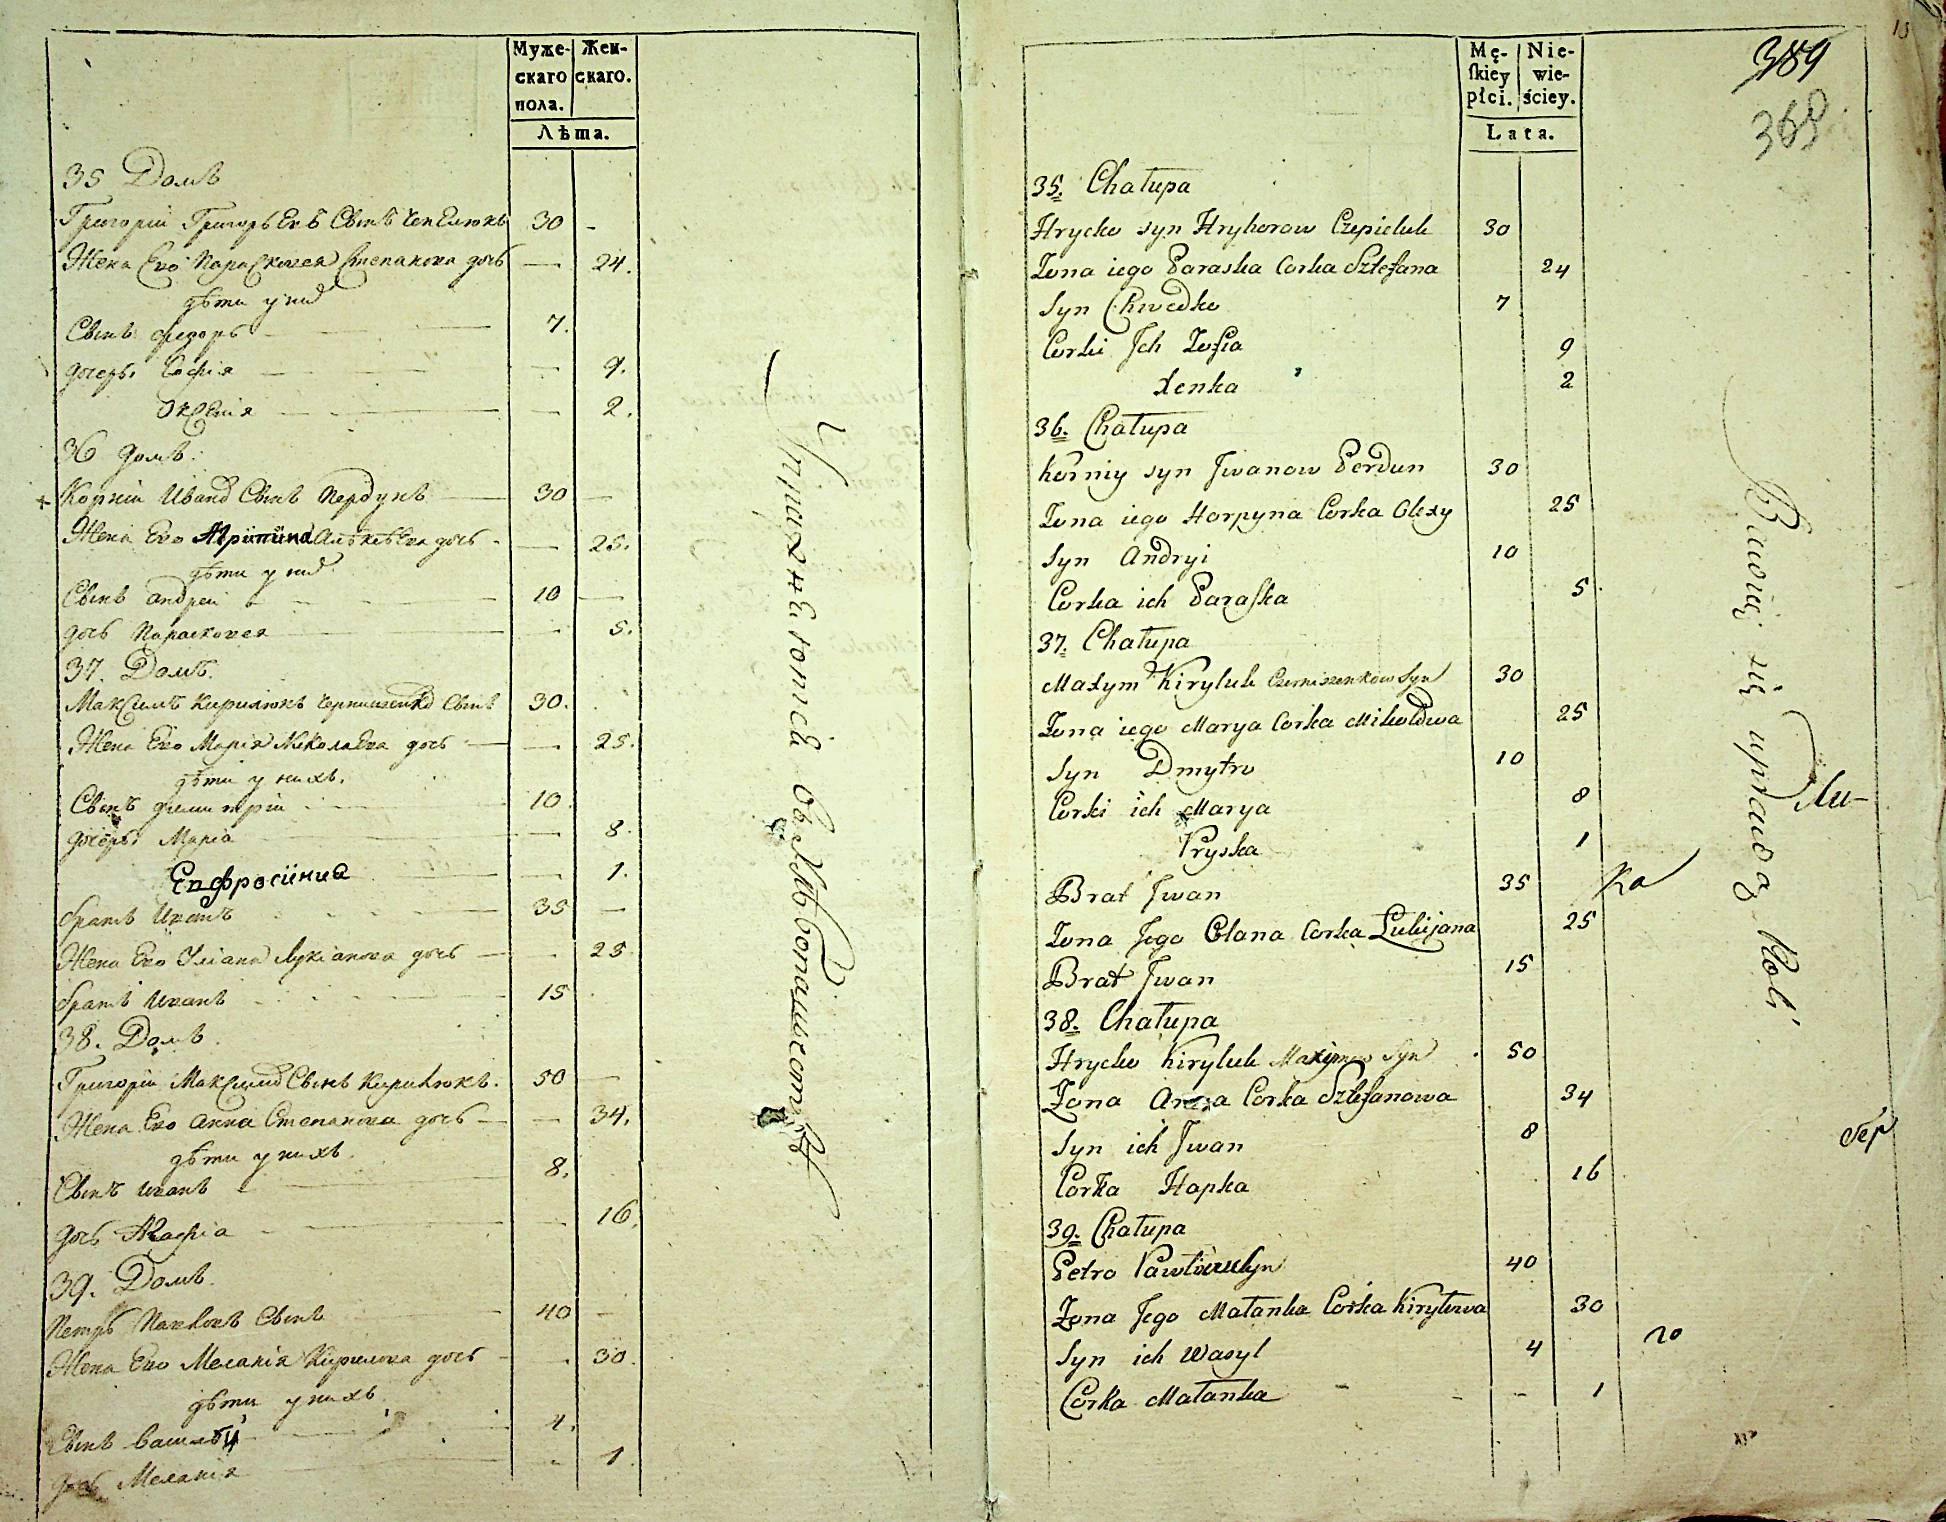 Муже-
скаго
пола.
Жен-
скаго.
Лѣта.
35 Домъ
Григорій Григорьевъ Сынъ Чепелюкъ 30 -
Жена Его Парасковея Степанова дочь — 24.
дѣти у них
Сынъ Федоръ — 7.
дочерь София — 9.
Оксенія — 2.
36 домъ.
Корній Иванов Сынъ Пердунъ — 30 —
Жена Его Агрипина Алексѣева дочь - — 25.
дѣти у них
Сынъ андрей — 10 —
дочь Парасковея — 5.
37. Домъ.
Максимъ Кирилюкъ Чернишенков Сынъ 30.
Жена Его Марія Николаева дочь — 25.
дѣти у нихъ.
Сынъ димитрій 10
дочерь Маріа — 8.
Епфросіниа — 1.
братъ Иванъ 35 —
Жена Его Уліана Лукіанова дочь — 25
братъ Иванъ 15
38. Домъ.
Григорій Максимов Сынъ Кирилюкъ. 50 —
Жена Его Анна Степанова дочь — 34.
дѣти у нихъ.
Сынъ Иванъ 8.
дочь Агафіа — 16.
39. Домъ.
Петръ Павловъ Сынъ 40 -
Жена Его Меланія Кирилова дочь - 30.
дѣти у нихъ
Сынъ Василѣй 4.
дочь Меланія 1.
Упражнѣютсѣ въ хлѣбопашествѣ
Mę-
ſkiey
płci.
Nie-
wie-
ściey.
Lata.
389
368
35. Chałupa
Hrycko syn Hryhorow Czepieluk 30
Zona iego Paraska Corka Sztefana 24
Syn Chwedko 7
Corki Jch Zofia 9
Xenka 2
36. Chałupa
Korniy syn Jwanow Perdun 30
Zona iego Horpyna Corka Olexy 25
Syn Andryi 10
Corka ich Paraſka 5
37. Chałupa
Maxym Kiryluk Czerniszenkow Syn 30
Zona iego Marya Corka Mikołowa 25
Syn Dmytro 10
Corki ich Marya 8
Pryska 1
Brat Jwan 35
Zona Jego Olana Corka Łukijana 25
Brat Jwan 15
38. Chałupa
Hrycko Kiryluk Maxymow Syn 50
Zona Anna Corka Sztefanowa 34
Syn ich Jwan 8
Corka Hapka 16
39. Chałupa
Petro Pawłow Syn 40
Zona Jego Małanka Corka Kiryłowa 30
Syn ich Wasyl 4
Corka Małanka 1
Bawią się uprawą Roli
Ли-
ка
бер
го